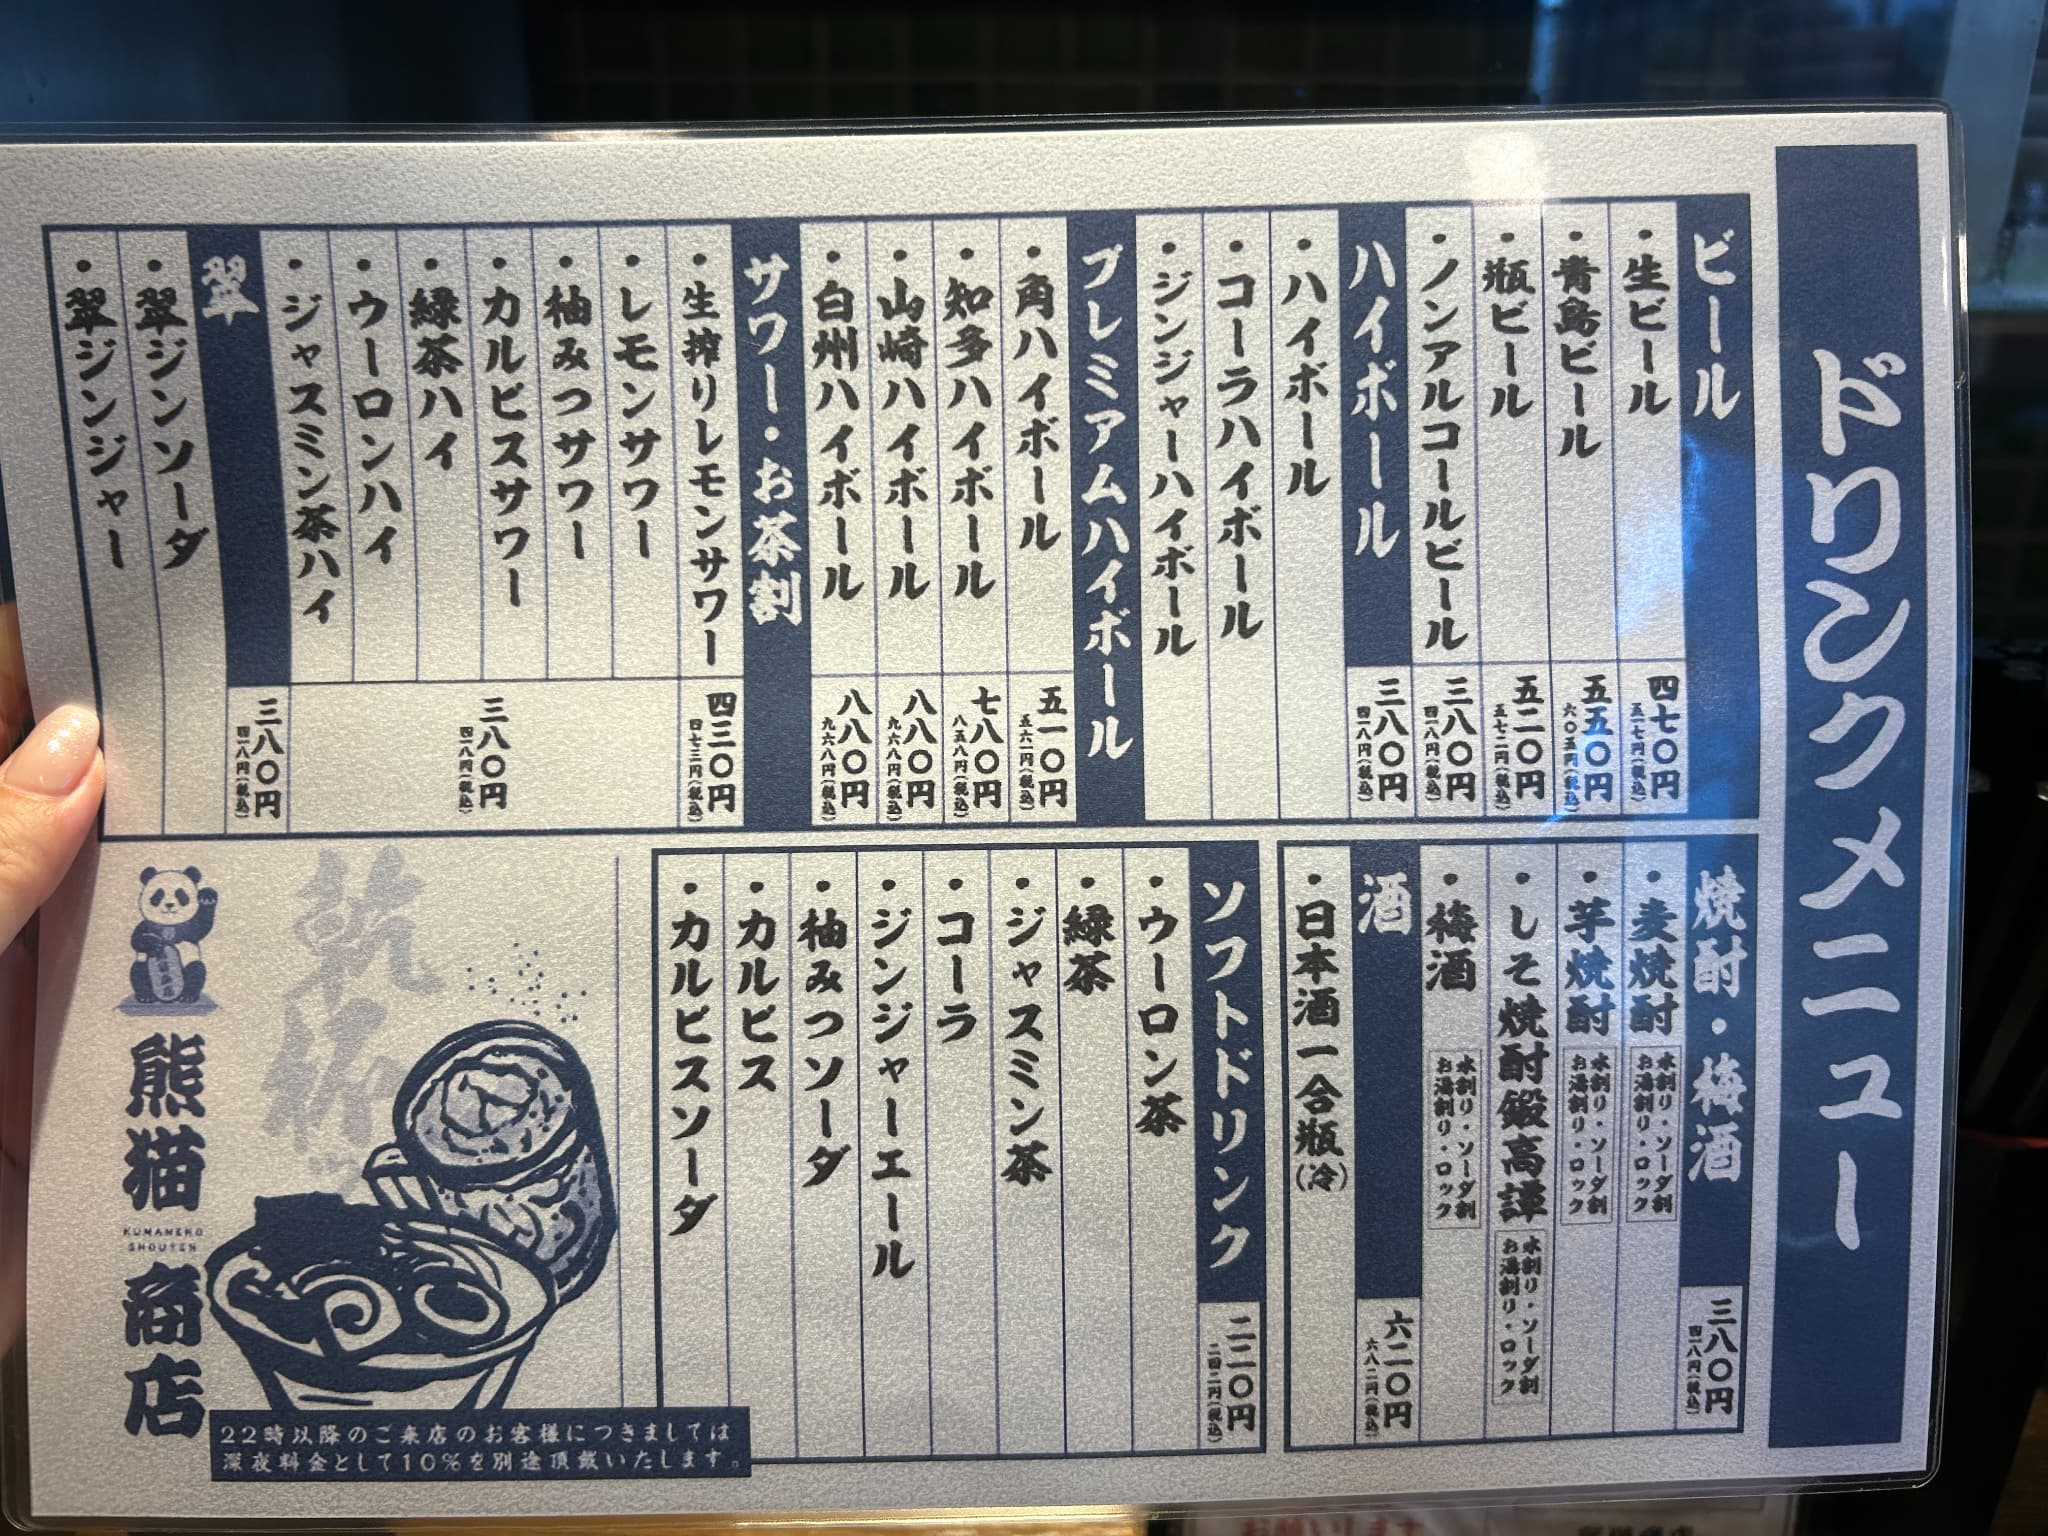 ドリンクメニュー
ビール
・生ビール
四七〇円
五一七円(税込)
・青島ビール
五五〇円
六〇五円(税込)
・瓶ビール
五二〇円
五七二円(税込)
・ノンアルコールビール
三八〇円
四一八円(税込)
ハイボール
三八〇円
四一八円(税込)
・ハイボール
・コーラハイボール
・ジンジャーハイボール
プレミアムハイボール
・角ハイボール
五一〇円
五六一円(税込)
・知多ハイボール
七八〇円
八五八円(税込)
・山崎ハイボール
八八〇円
九六八円(税込)
・白州ハイボール
八八〇円
九六八円(税込)
サワー・お茶割
・生搾りレモンサワー
四三〇円
四七三円(税込)
・レモンサワー
・柚みつサワー
・カルピスサワー
・緑茶ハイ
・ウーロンハイ
・ジャスミン茶ハイ
三八〇円
四一八円(税込)
翠
三八〇円
四一八円(税込)
・翠ジンソーダ
・翠ジンジャー
焼酎・梅酒
三八〇円
四一八円(税込)
・麦焼酎
水割り・ソーダ割
お湯割り・ロック
・芋焼酎
水割り・ソーダ割
お湯割り・ロック
・しそ焼酎鍛高譚
水割り・ソーダ割
お湯割り・ロック
・梅酒
水割り・ソーダ割
お湯割り・ロック
酒
六二〇円
六八二円(税込)
・日本酒一合瓶(冷)
ソフトドリンク
二二〇円
二四二円(税込)
・ウーロン茶
・緑茶
・ジャスミン茶
・コーラ
・ジンジャーエール
・柚みつソーダ
・カルピス
・カルピスソーダ
乾杯
熊猫
KUMANEKO
SHOUTEN
商店
22時以降のご来店のお客様につきましては
深夜料金として10%を別途頂戴いたします。
お願いします